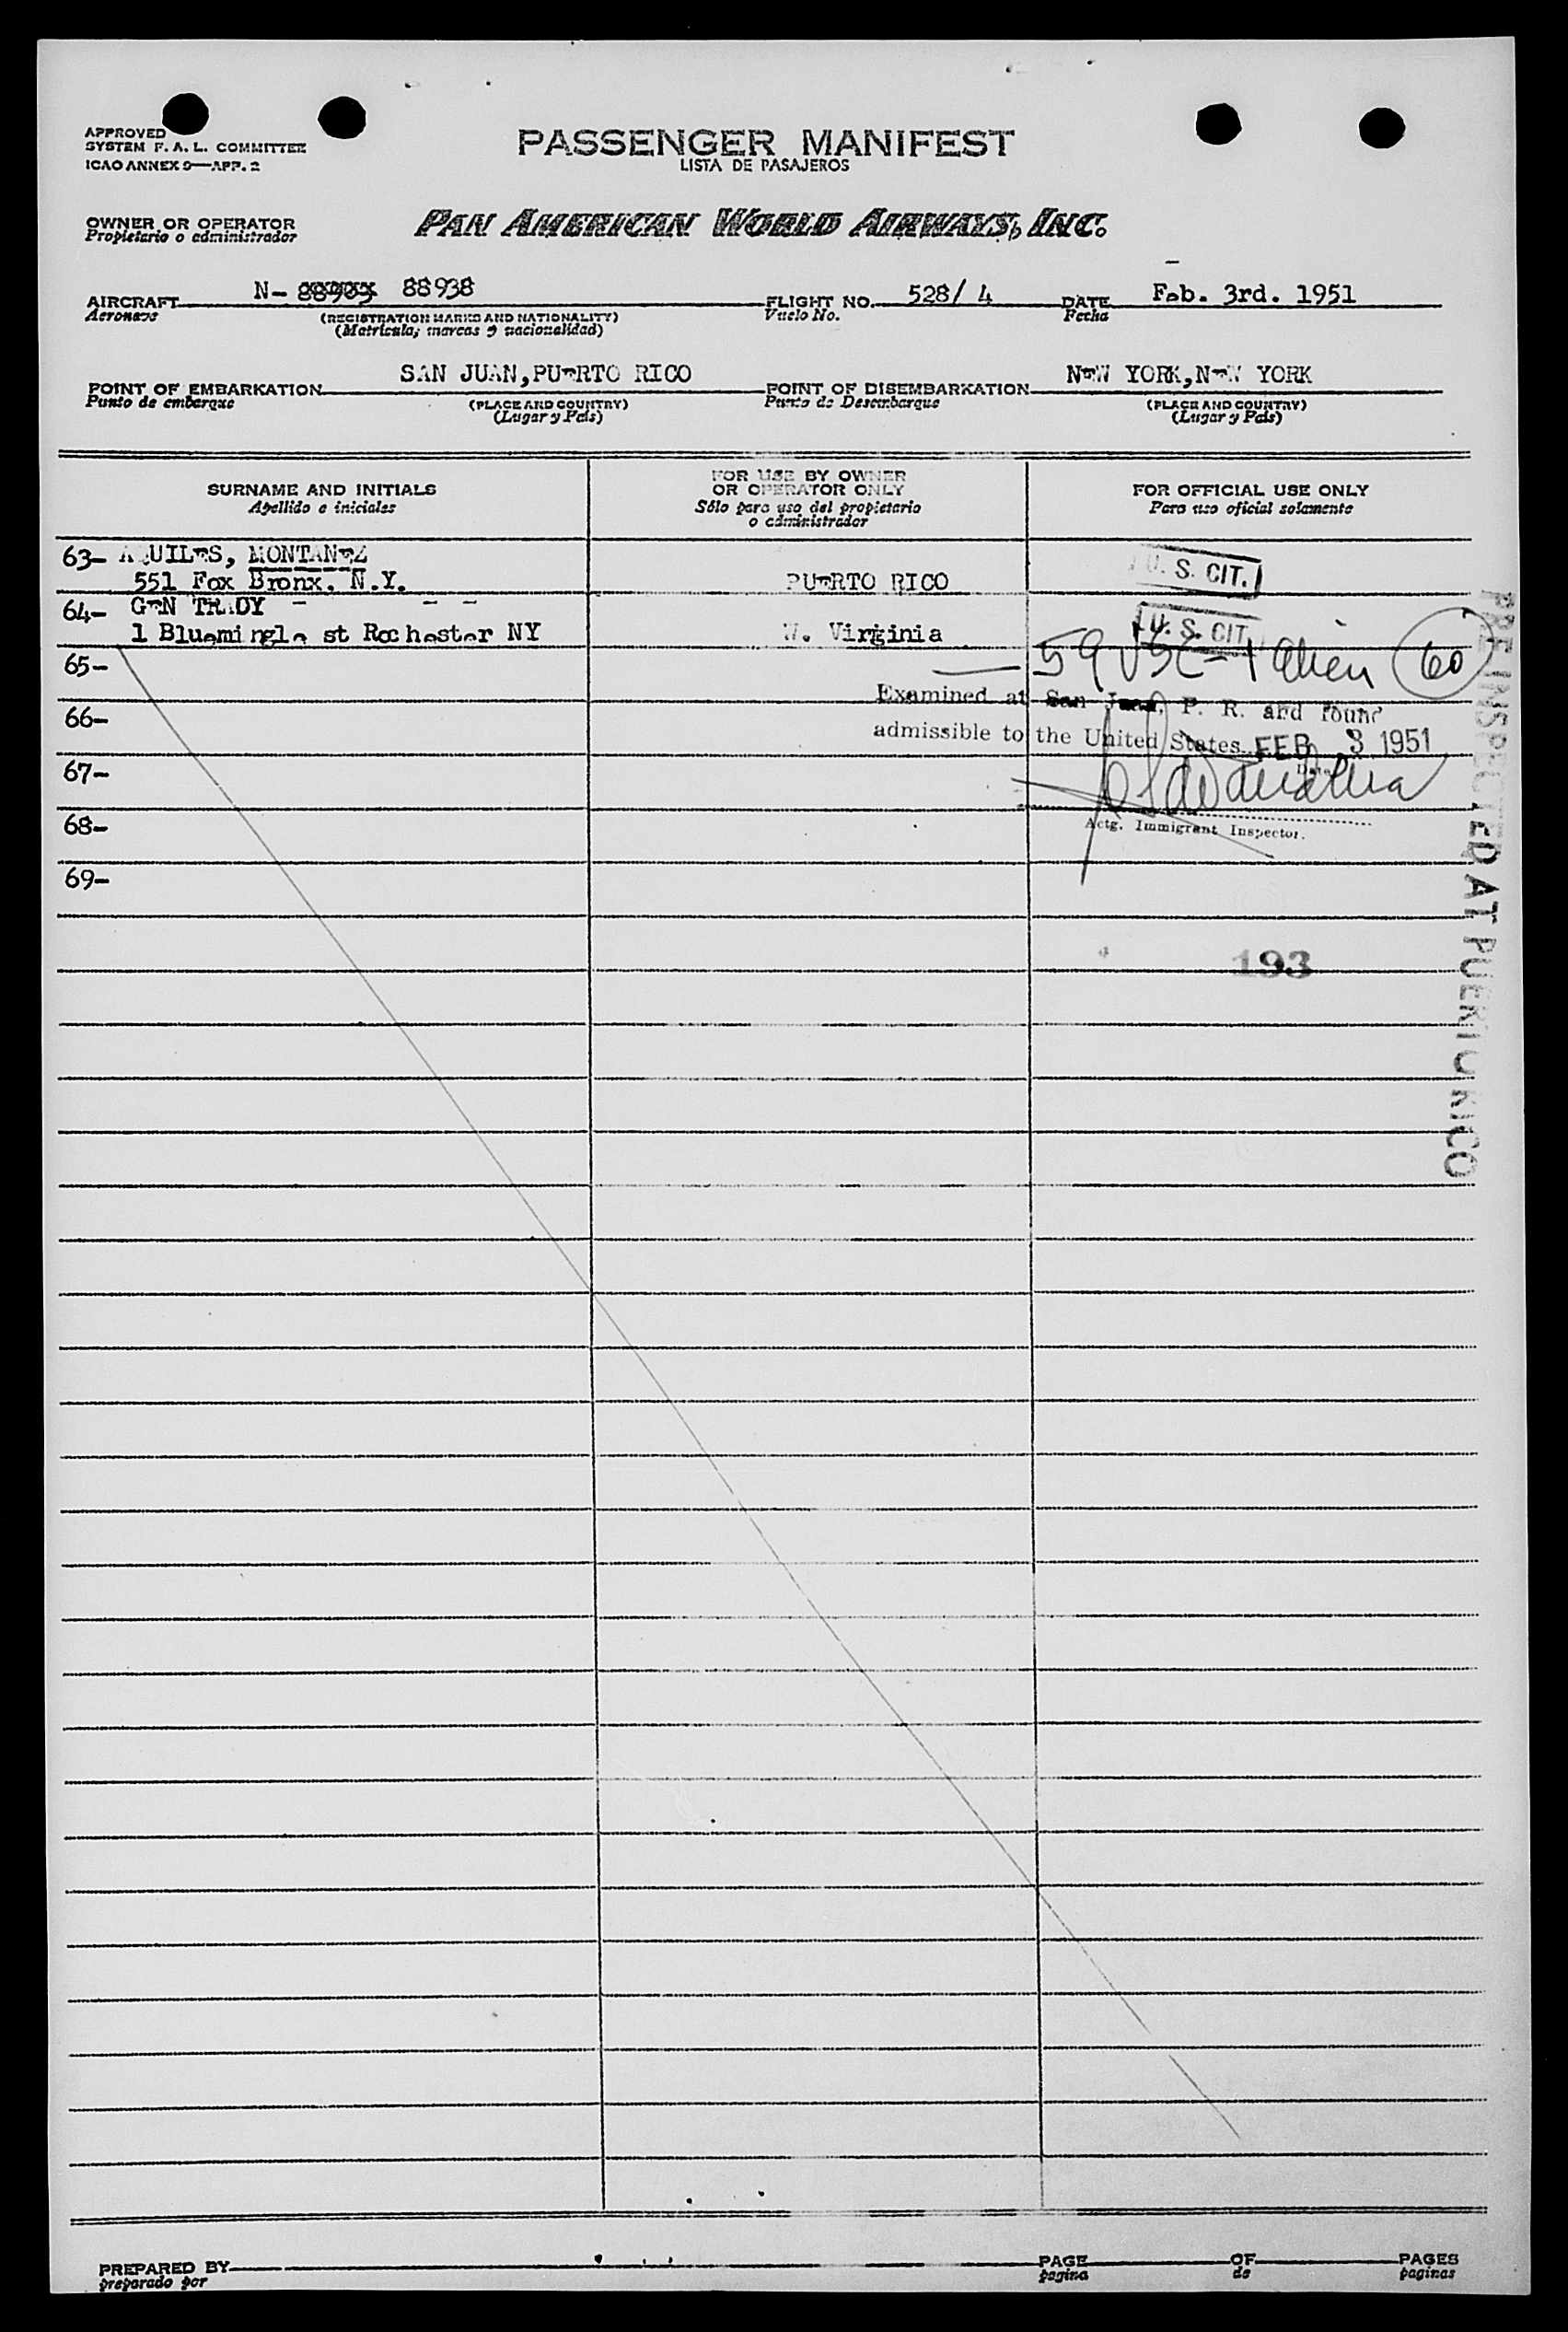 APPROVED
SYSTEM F. A. L. COMMITTEE
ICAO ANNEX 9—APP. 2
PASSENGER MANIFEST
LISTA DE PASAJEROS
OWNER OR OPERATOR
Propietario o administrador
PAN AMERICAN WORLD AIRWAYS, INC.
AIRCRAFT N- 88938 FLIGHT NO. 528/ 4 DATE Feb. 3rd. 1951
Aeronave (REGISTRATION MARKS AND NATIONALITY) Vuelo No. Fecha
(Matrícula, marcas y nacionalidad)
POINT OF EMBARKATION SAN JUAN,PUERTO RICO POINT OF DISEMBARKATION NEW YORK,NEW YORK
Punto de embarque (PLACE AND COUNTRY) Punto de Desembarque (PLACE AND COUNTRY)
(Lugar y País) (Lugar y País)
SURNAME AND INITIALS
Apellido e iniciales
FOR USE BY OWNER
OR OPERATOR ONLY
Sólo para uso del propietario
o administrador
FOR OFFICIAL USE ONLY
Para uso oficial solamente
63- AQUILES, MONTANEZ
551 Fox Bronx, N.Y. PUERTO RICO U. S. CIT.
64- GEN TRADY - - -
1 Bluemingle st Rochester NY W. Virginia U. S. CIT
65- 59 USC - 1 Alien 60
Examined at San Juan, P. R. and found
66-
admissible to the United States FEB 3 1951
67- Date
68- Actg. Immigrant Inspector.
69-
193
PRE-INSPECTED AT PUERTO RICO
PREPARED BY PAGE OF PAGES
preparado por pagina de paginas